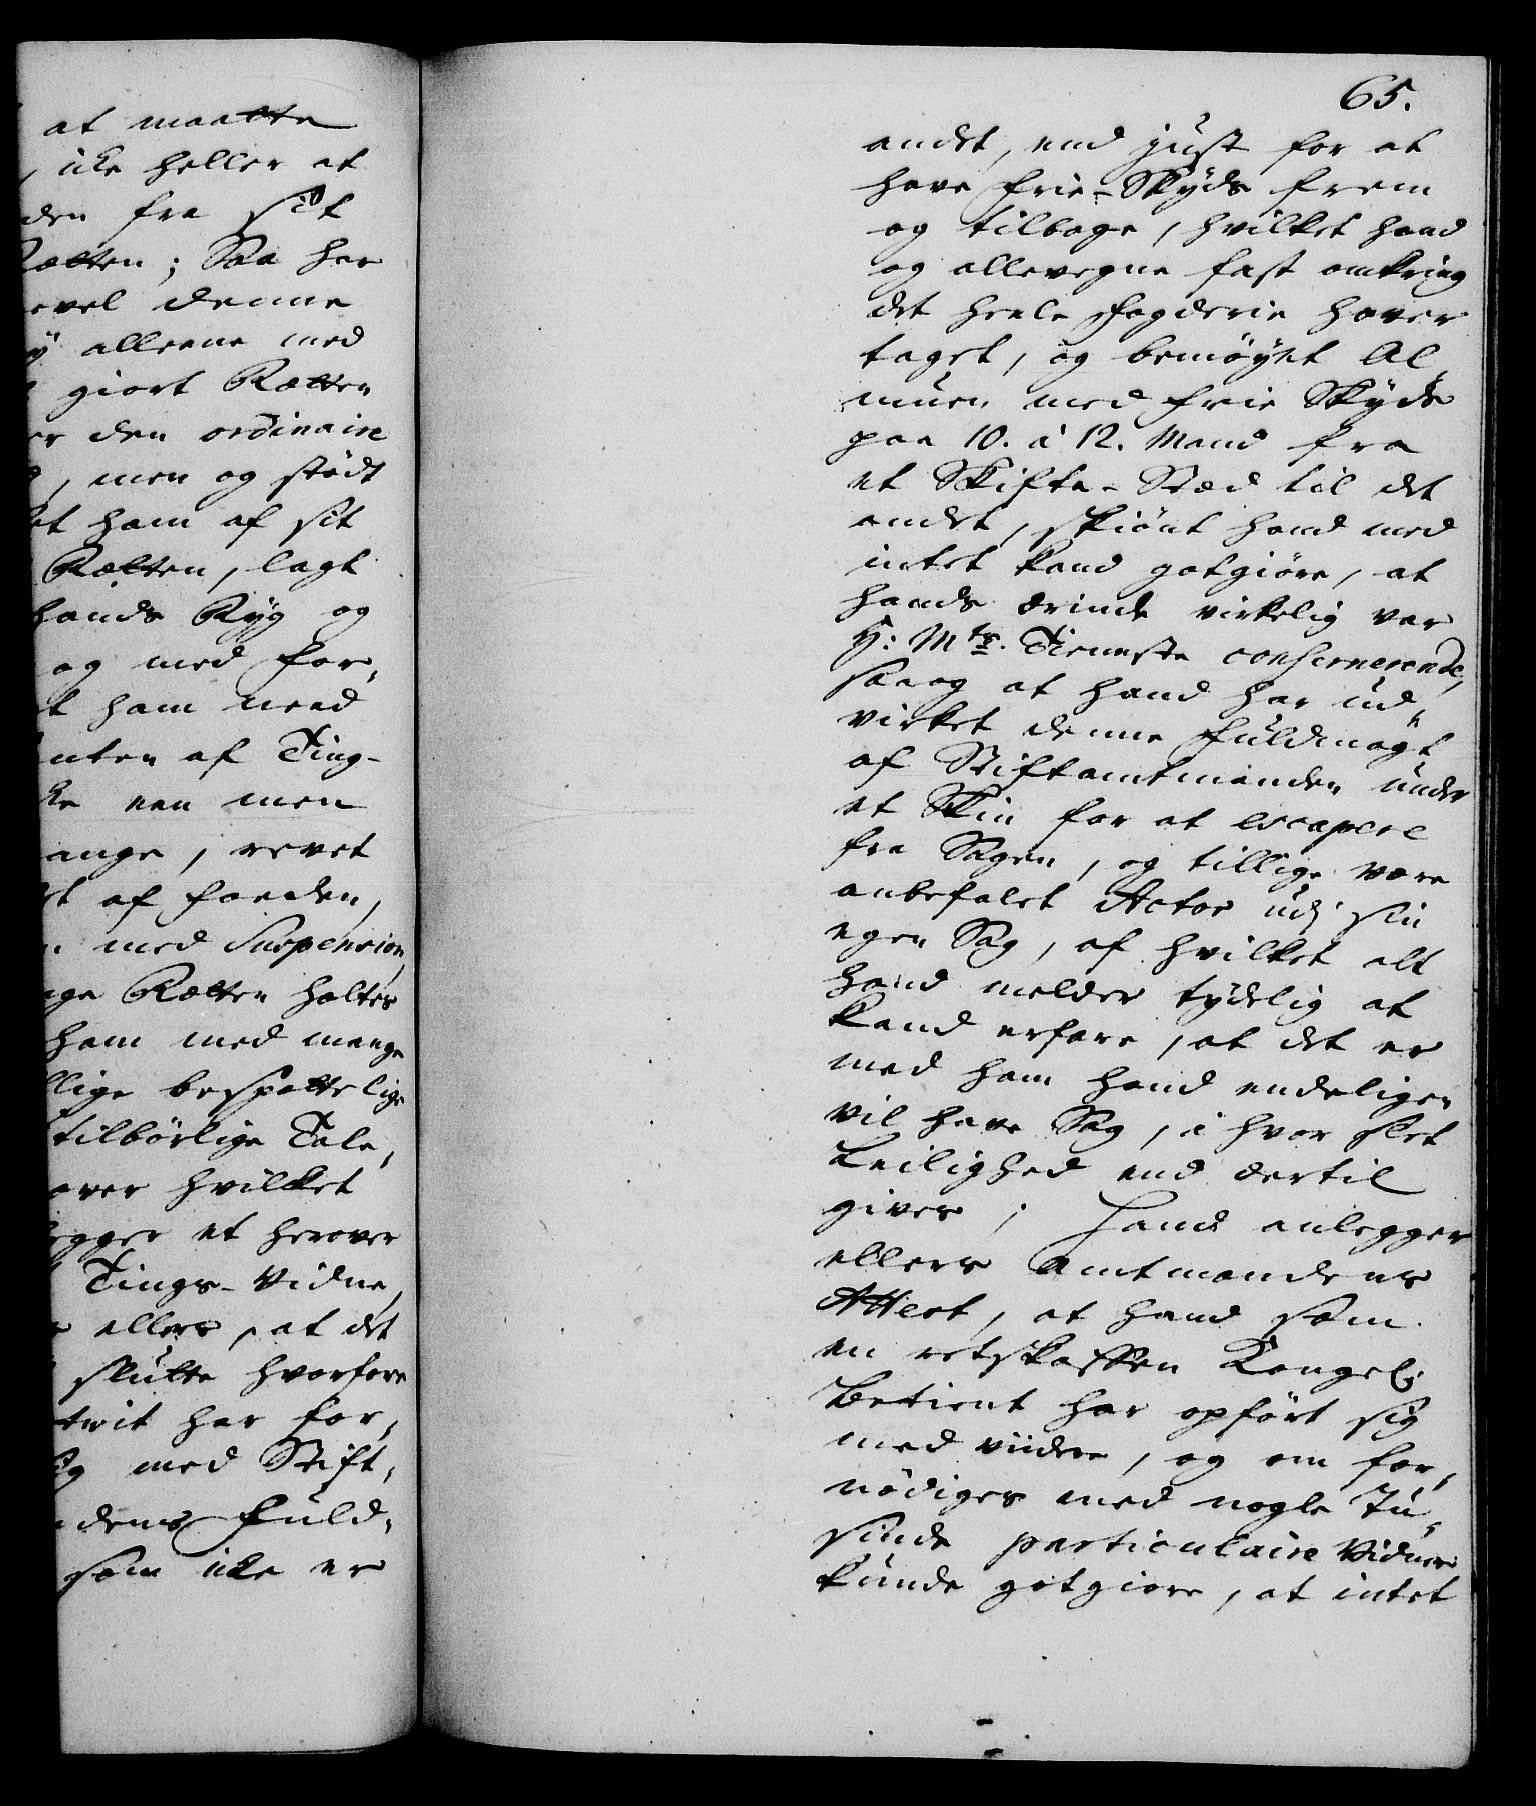 at maatte
ike heller at
den fra sit
Rætten; Saa har
evel denne
alleene med
giort Rætten
er den ordinaire
, men og stødt
et ham af sit
Rætten, lagt
hands Ryg og
og med for„
t ham need
inten af Ting-
ke een men
ange, revet
t af Panden,
med Suspension,
ge Rætten holtes
ham med mange
llige bespottelige
tilbörlige Tale,
over hvilket
egger et herover
Tings-Vidne,
ellers, at det
slutte hvorfore
twit har for„
ig med Stift„
dens Fuld„
som ike er
65.
andet, end just for at
have frie-Skyds frem
og tilbage, hvilket hand
og allevegne fast omkring
det heele Fogderie haver
taget, og bemøyet Al„
muen med frie Skyds
paa 10. à 12. Mand fra
et Skifte-Stæd til det
andet, skiönt hand med
intet kand gotgiöre, at
hands ærinde virkelig var
H: Mts. Tieneste concernerende,
saa og at hand har ud„
virket denne Fuldmagt
af Stiftamtmanden under
et Skin for at escapere
fra Sagen, og tillige være
anbefalet Actor udj sin
egen Sag, af hvilket alt
hand melder tydelig at
kand erfare, at det er
med ham hand endeligen
vil have Sag, i hvor slet
Leilighed end dertil
gives; Hand anlegger
ellers Amtmandens
Attest, at hand som
en retskaffen Kongel:
Betient har opfört sig
med viidere, og om for„
nödiges med nogle Tu„
sinde particulaire Vidner
kunde gotgiöre, at intet